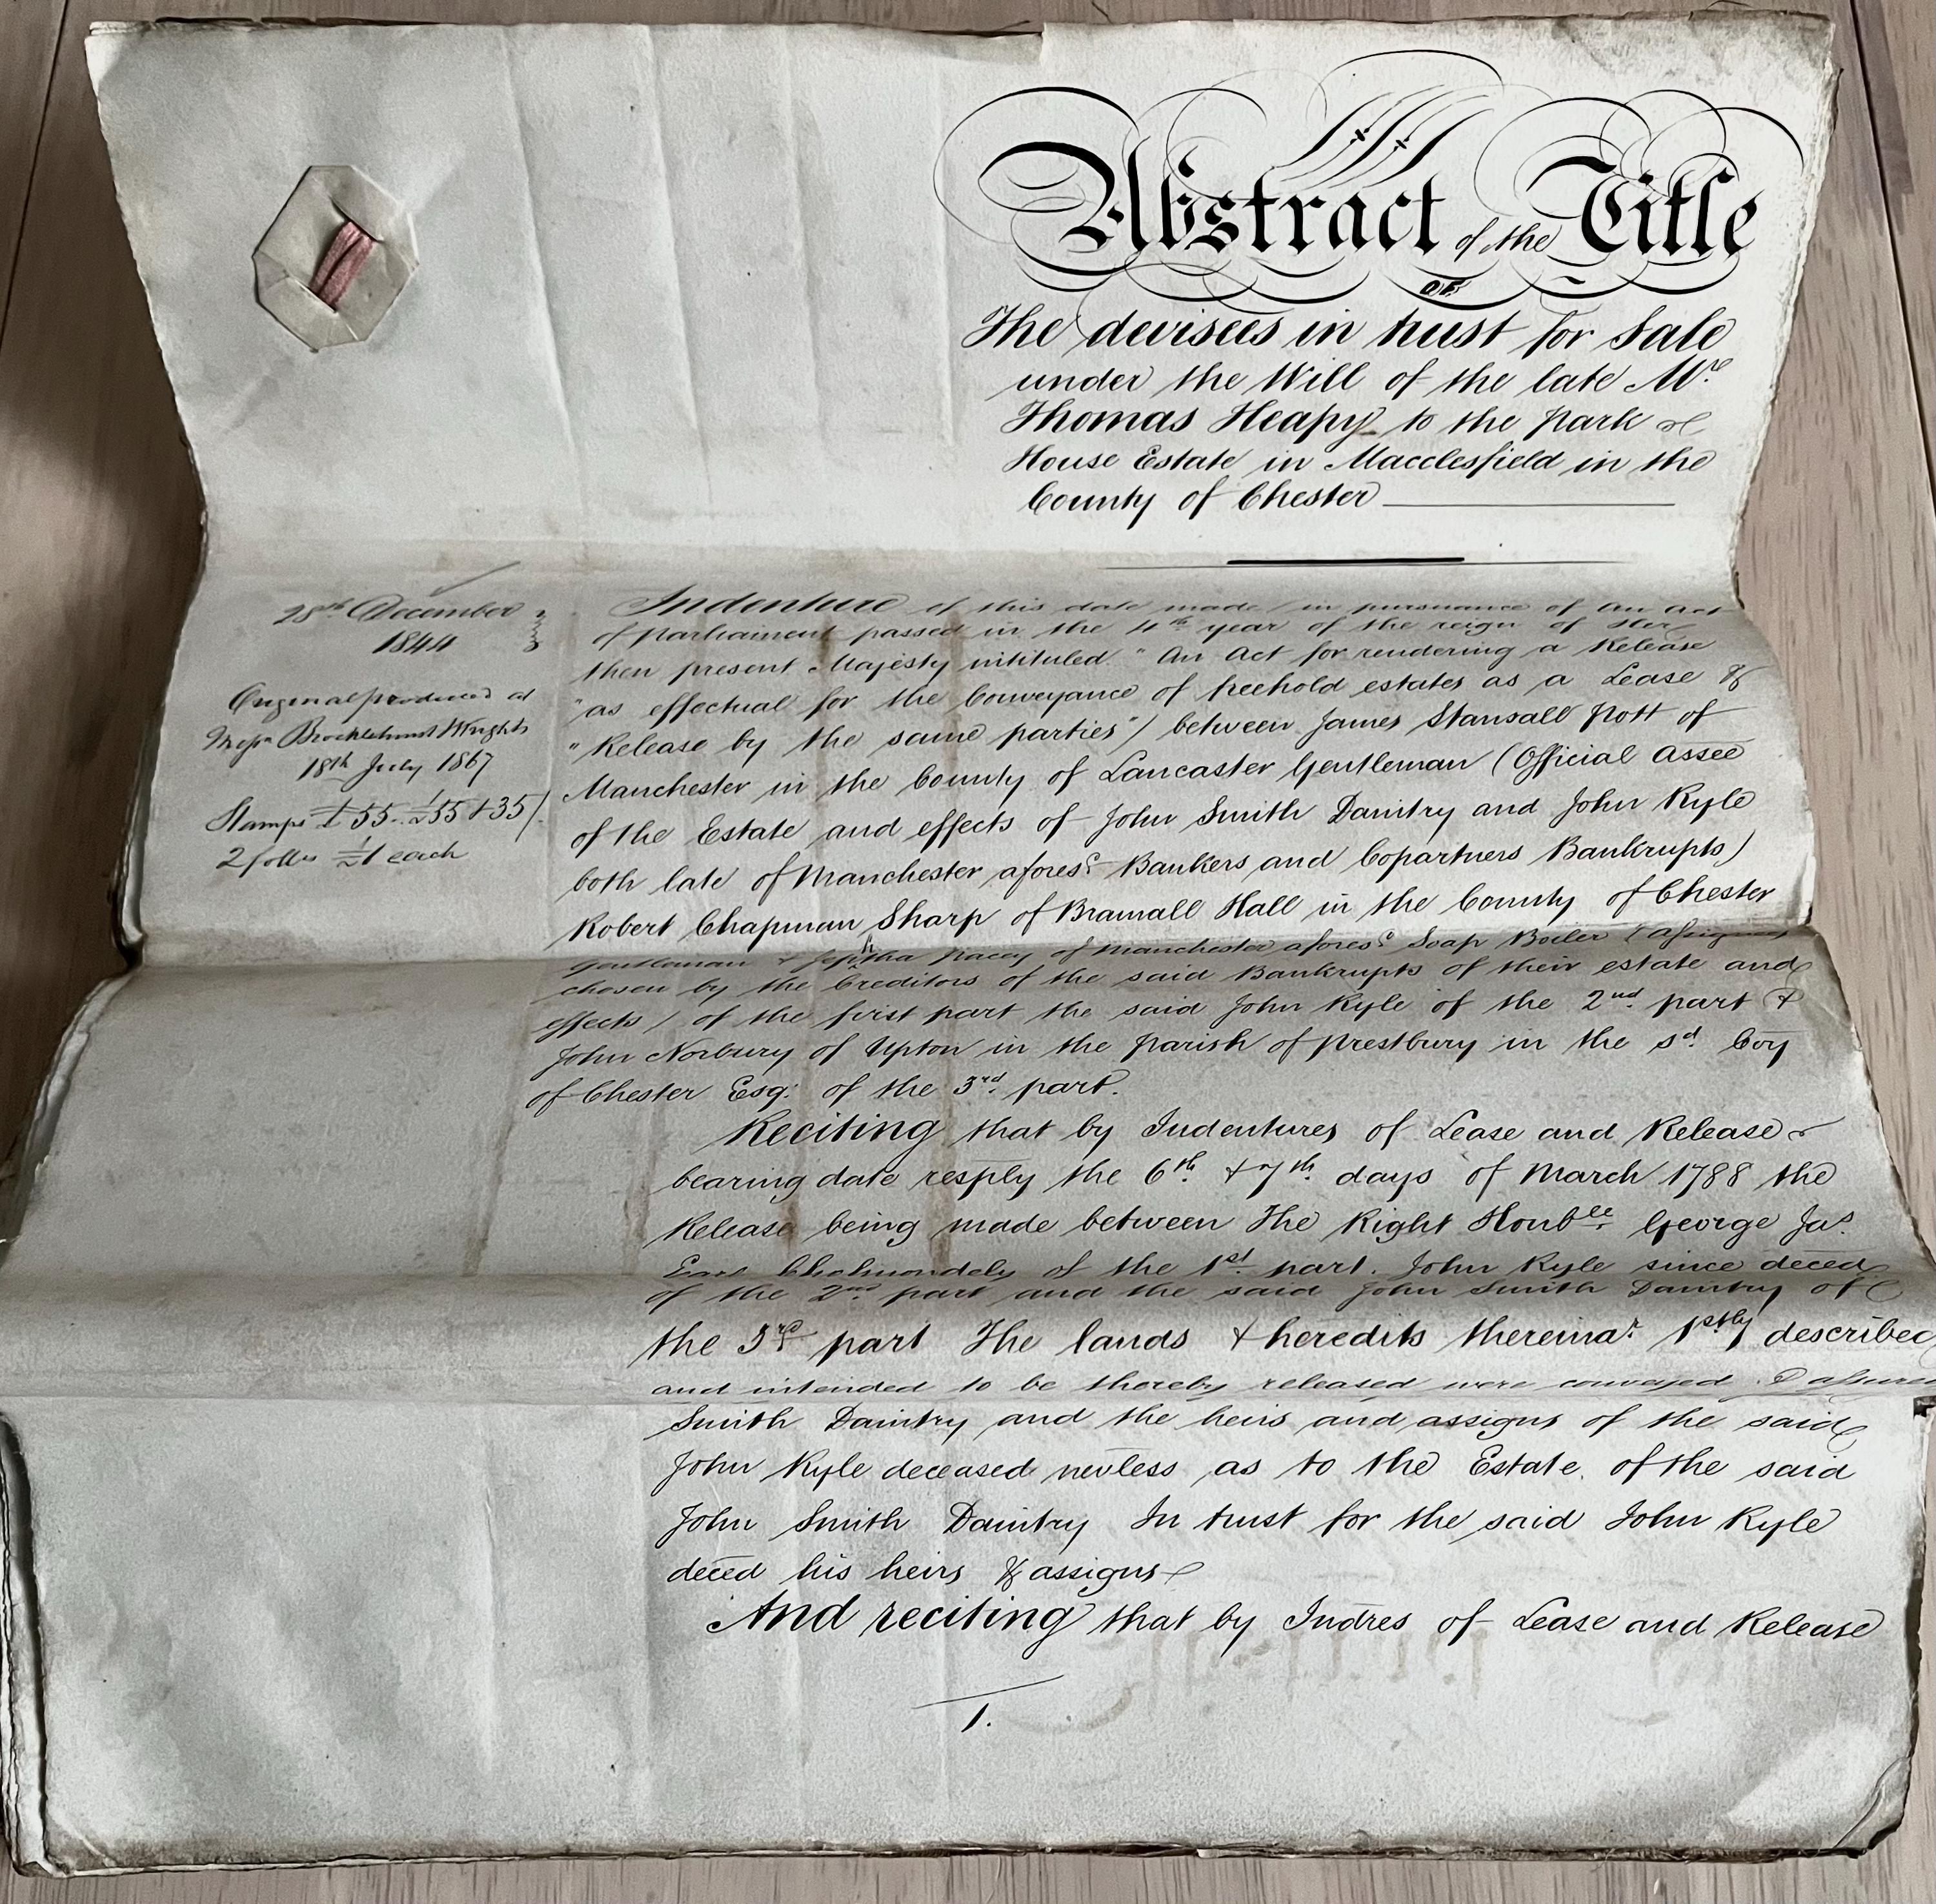 Abstract of the Title
OF
The devisees in trust for Sale
under the Will of the late Mr.
Thomas Heapy to the Park
House Estate in Macclesfield in the
County of Chester
28th December
1844
Original produced at
Messrs Brocklehurst & Wrights
18th July 1867
Stamps £55. £55 & 35/.
2 follrs £1 each
Indenture of this date made (in pursuance of An Act
of parliament passed in the 4th year of the reign of Her
then present Majesty intituled "An Act for rendering a Release
"as effectual for the Conveyance of freehold estates as a Lease &
"Release by the same parties") between James Stansall Pott of
Manchester in the County of Lancaster Gentleman (Official Assee
of the Estate and effects of John Smith Daintry and John Ryle
both late of Manchester aforesd. Bankers and Copartners Bankrupts)
Robert Chapman Sharp of Bramall Hall in the County of Chester
Gentleman & Jeptha Pacey of Manchester aforesd. Soap Boiler (Assignees
chosen by the Creditors of the said Bankrupts of their estate and
effects) of the first part the said John Ryle of the 2nd. part &
John Norbury of Upton in the Parish of Prestbury in the sd. Coy
of Chester Esq: of the 3rd. part.
Reciting that by Indentures of Lease and Release
bearing date resply the 6th. & 7th. days of March 1788 the
Release being made between The Right Honble. George Jas.
Earl Cholmondely of the 1st. part. John Ryle since deced
of the 2nd part and the said John Smith Daintry of
the 3rd part The lands & heredits thereinar. 1stly described
and intended to be thereby released were conveyed & assured
Smith Daintry and the heirs and assigns of the said
John Ryle deceased nevless as to the Estate of the said
John Smith Daintry In trust for the said John Ryle
deced his heirs & assigns
And reciting that by Indres of Lease and Release
1.